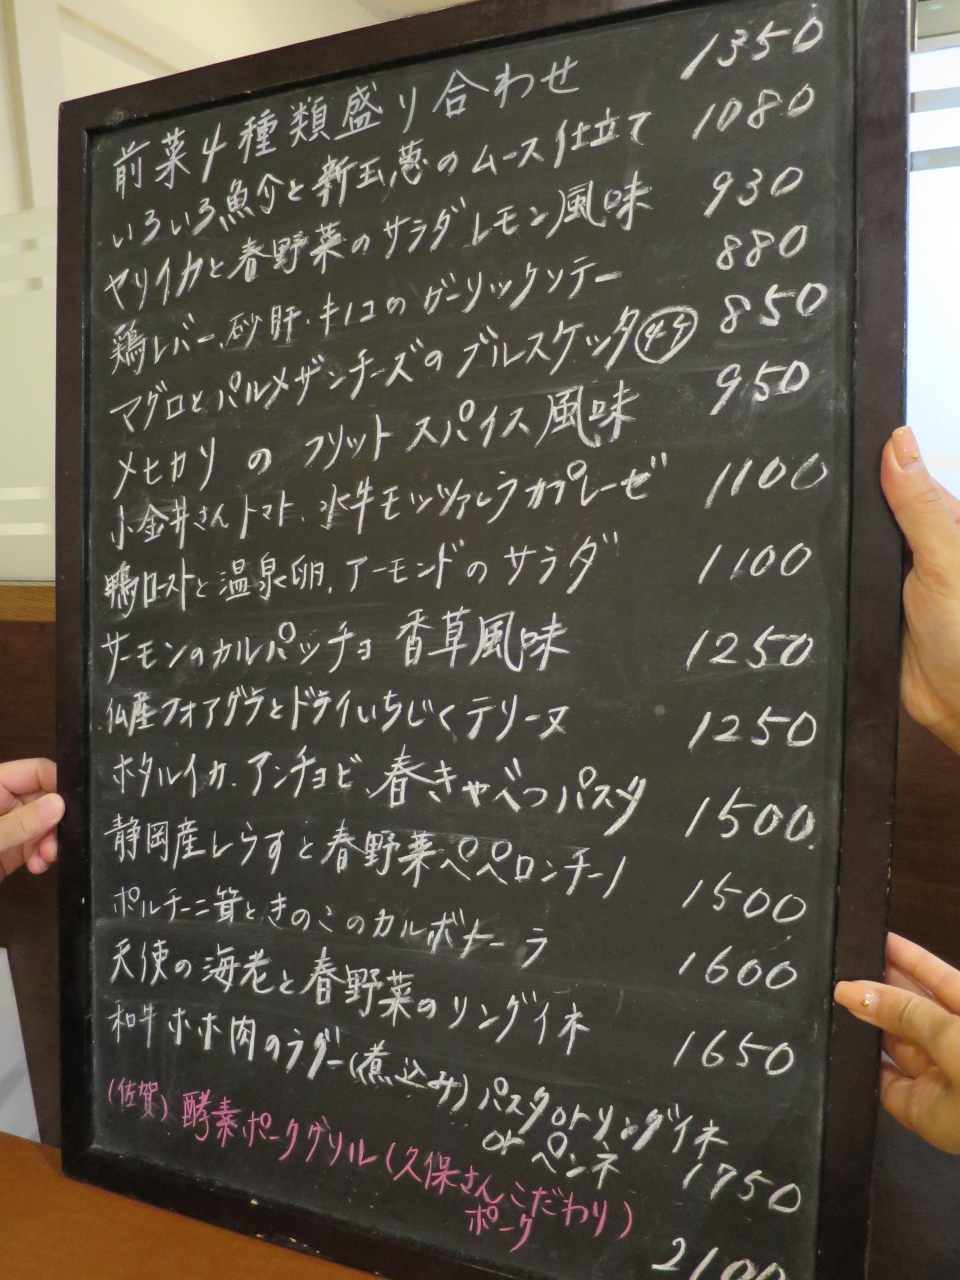 前菜4種類盛り合わせ 1350
いろいろ魚介と新玉葱のムース仕立て 1080
ヤリイカと春野菜のサラダ レモン風味 930
鶏レバー、砂肝、キノコのガーリックソテー 880
マグロとパルメザンチーズのブルスケッタ 850
メヒカリのフリット スパイス風味 950
小金井さんトマト、水牛モッツァレラカプレーゼ 1100
鴨ローストと温泉卵、アーモンドのサラダ 1100
サーモンのカルパッチョ 香草風味 1250
仏産フォアグラとドライいちじくテリーヌ 1250
ホタルイカ、アンチョビ、春きゃべつパスタ 1500
静岡産しらすと春野菜ペペロンチーノ 1500
ポルチーニ茸ときのこのカルボナーラ 1600
天使の海老と春野菜のリングイネ 1650
和牛ホホ肉のラグー(煮込み)パスタorリングイネ
orペンネ 1750
(佐賀)酵素ポークグリル(久保さんこだわり
ポーク) 2100